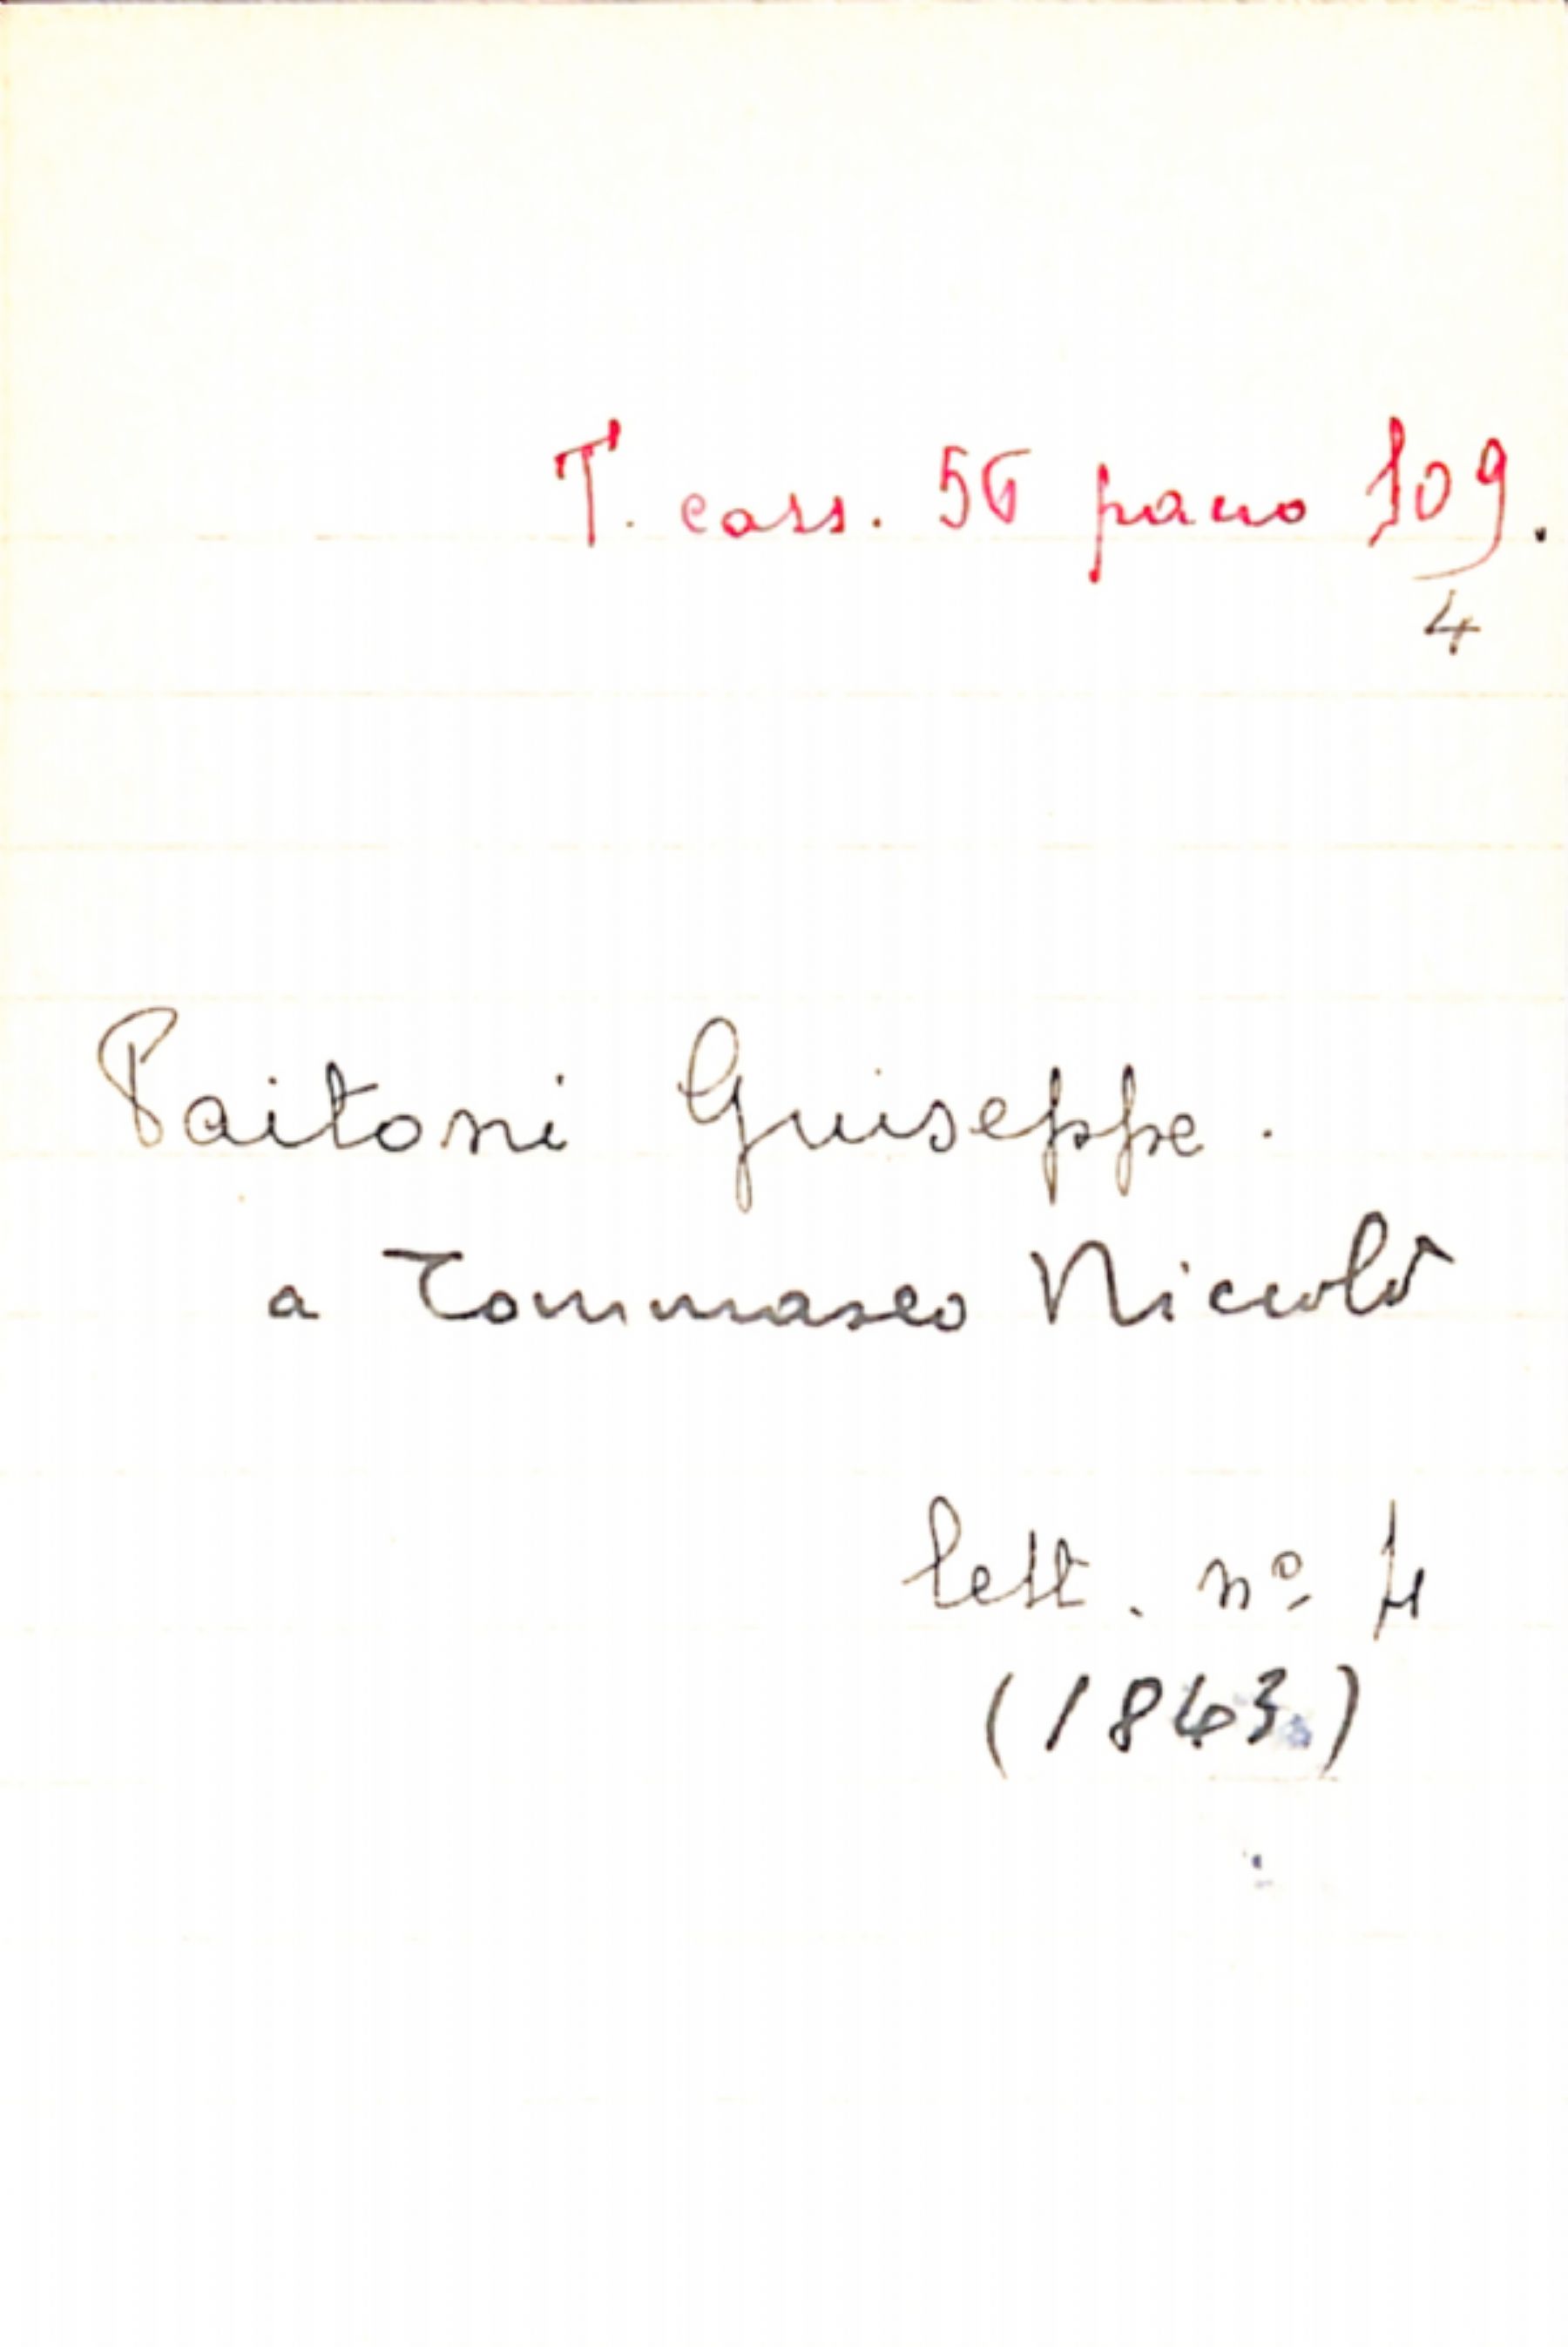 T. cass. 56 pacco 109.
4
Paitoni Giuseppe.
a Tommaseo Niccolò
lett. nº 4
(1843)